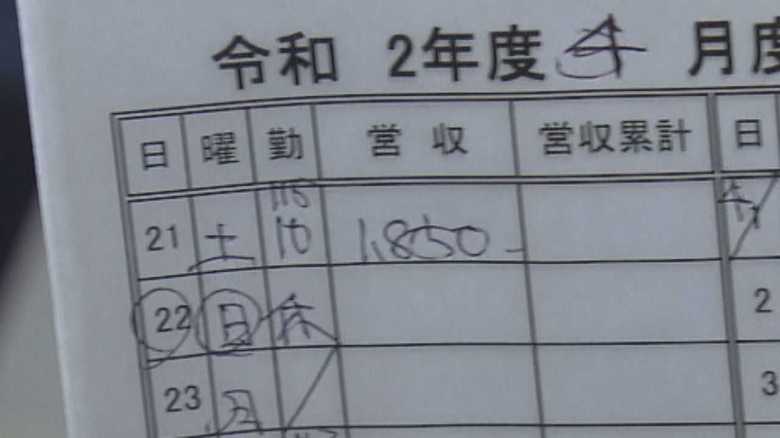 令和 2年度 4 月度
日 曜 勤 営収 営収累計 日
21 土 10 1,850-
22 日 休 2
23 月 3